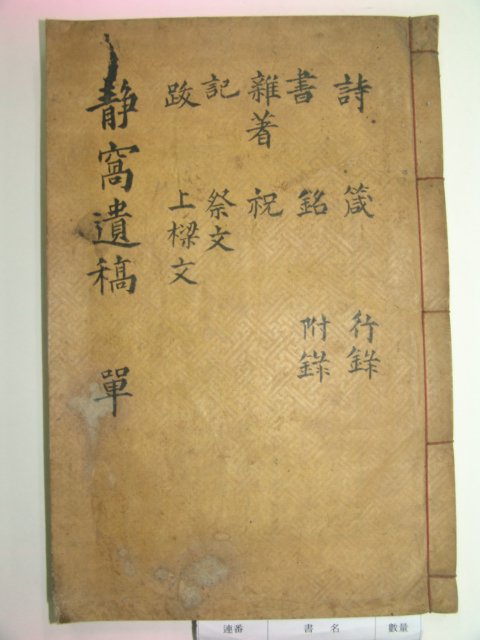 詩 箴 行錄
書 銘 附錄
雜著 祝
記 祭文
跋 上樑文
靜窩遺稿 單
連番 書名 數量